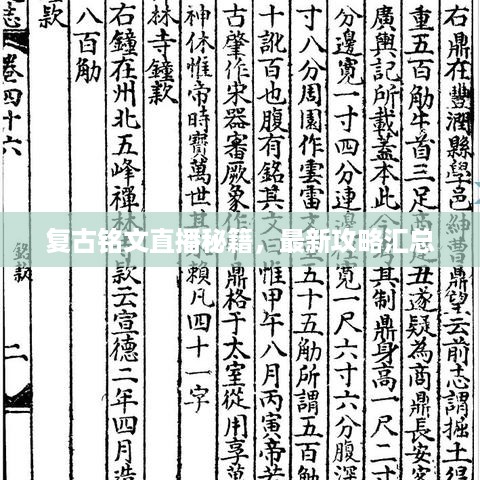 右鼎在豐潤縣學邑紳曹鼎望云前志謂掘土得
重五百觔牛首三足丑遂疑為商鼎長安客
廣輿記所載蓋本此今其制鼎身高一尺二寸
分邊寬一寸四分連寬一尺六寸六分腹深
寸八分周圍作雲雷文五十五觔所謂五百觔
十訛百也腹有銘其文惟甲午八月丙寅帝若
古肇作宋器審厥象作鼎格于太室從用享萬
神休惟帝時寶萬世其賴凡四十一字
林寺鐘款
右鐘在州北五峰禪林款云宣德二年四月造
八百觔
款
志
卷四十六
銘款
二
复古铭文直播秘籍，最新攻略汇总